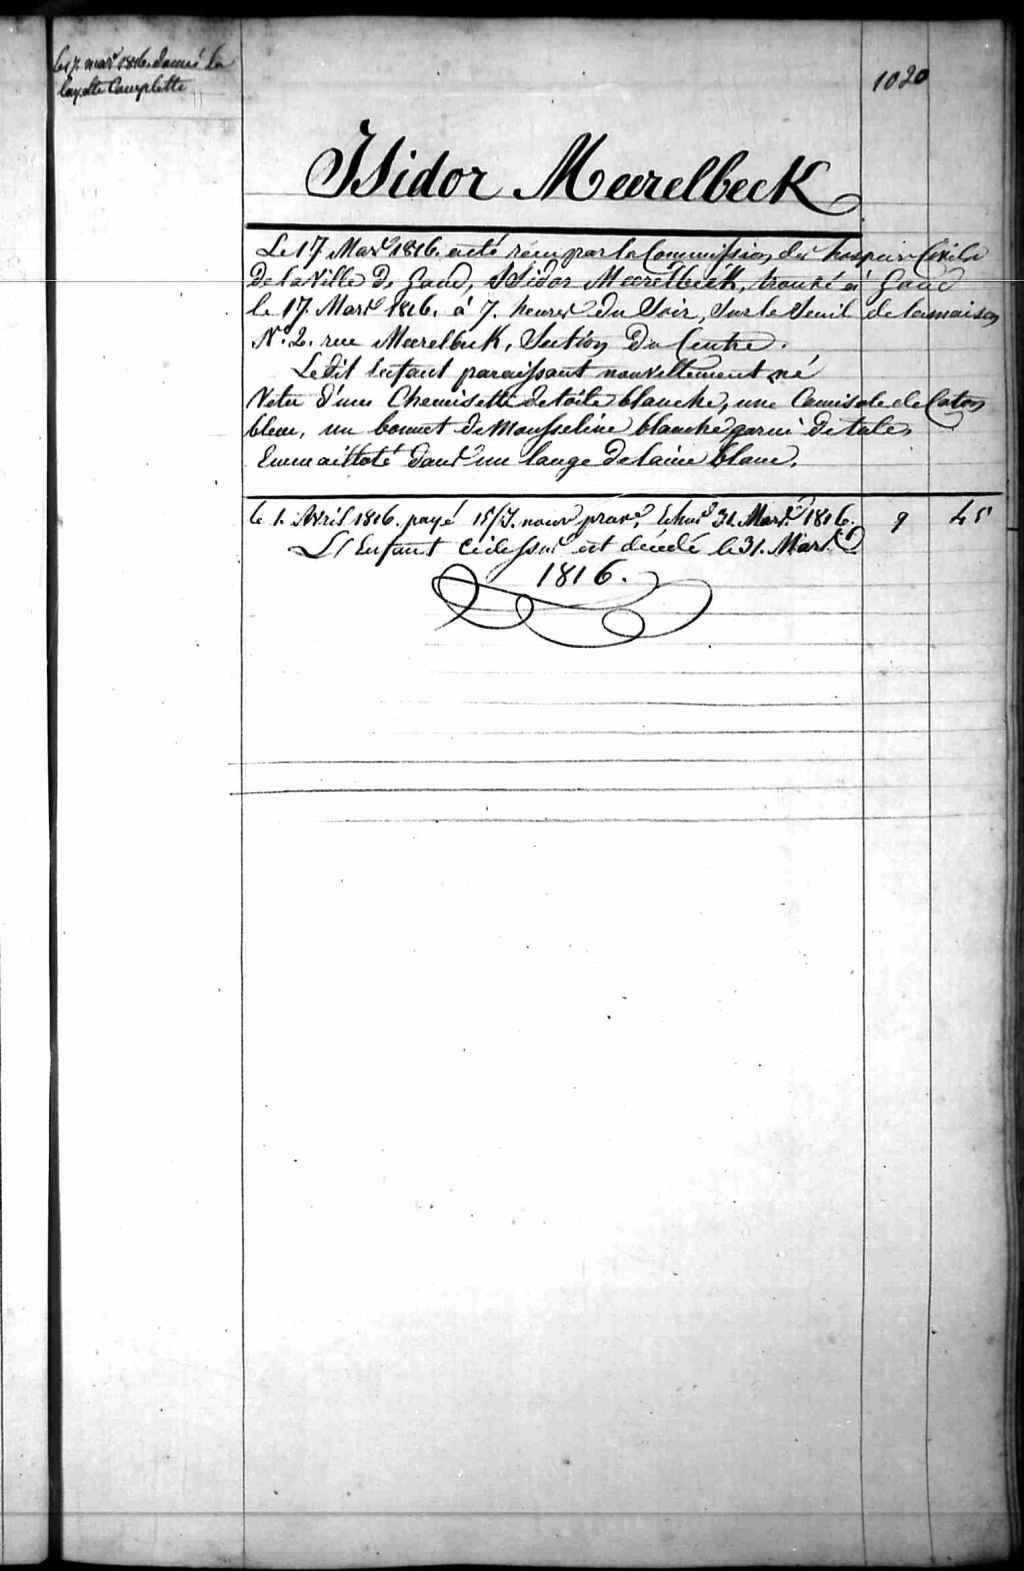 Le 17 Mars 1816. donné la
layette Complette
1020
Isidor Meerelbeck
Le 17 Mars 1816. a été reçu par la Commission des hospices Civils
De la Ville De Gand, Isidor Meerelbeck, trouvé à Gand
le 17. Mars 1816. à 7. heures Du Soir, Sur le Seuil de la maison
N.º 2. rue Meerelbeck, Section Du Centre.
Le dit Enfant paraissant nouvellement né
Vetu d'une Chemisette de toile blanche, une Camisole de Coton
bleu, un bonnet de Mousseline blanche garni De tule,
Emmailloté dans un lange De laine blanc.
le 1. Avril 1816. payé 15/J. nour Echus 31. Mars 1816. 9 45
L'Enfant ci dessus est décédé le 31. Mars
1816.